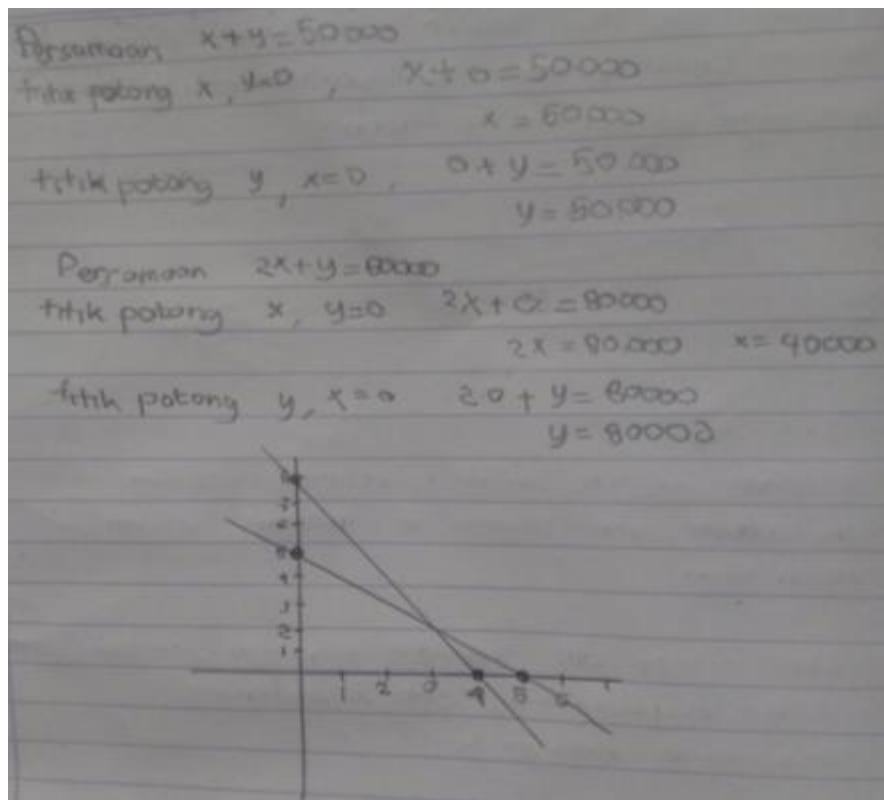 Persamaan x+y=50000
titik potong x, y=0, x+0=50000
x=50000
titik potong y, x=0, 0+y=50.000
y=50000
Persamaan 2x+y=80000
titik potong x, y=0 2x+0=80000
2x=80.000 x=40000
titik potong y, x=0 20+y=80000
y=80000
8
7
6
5
4
3
2
1
1 2 3 4 5 6